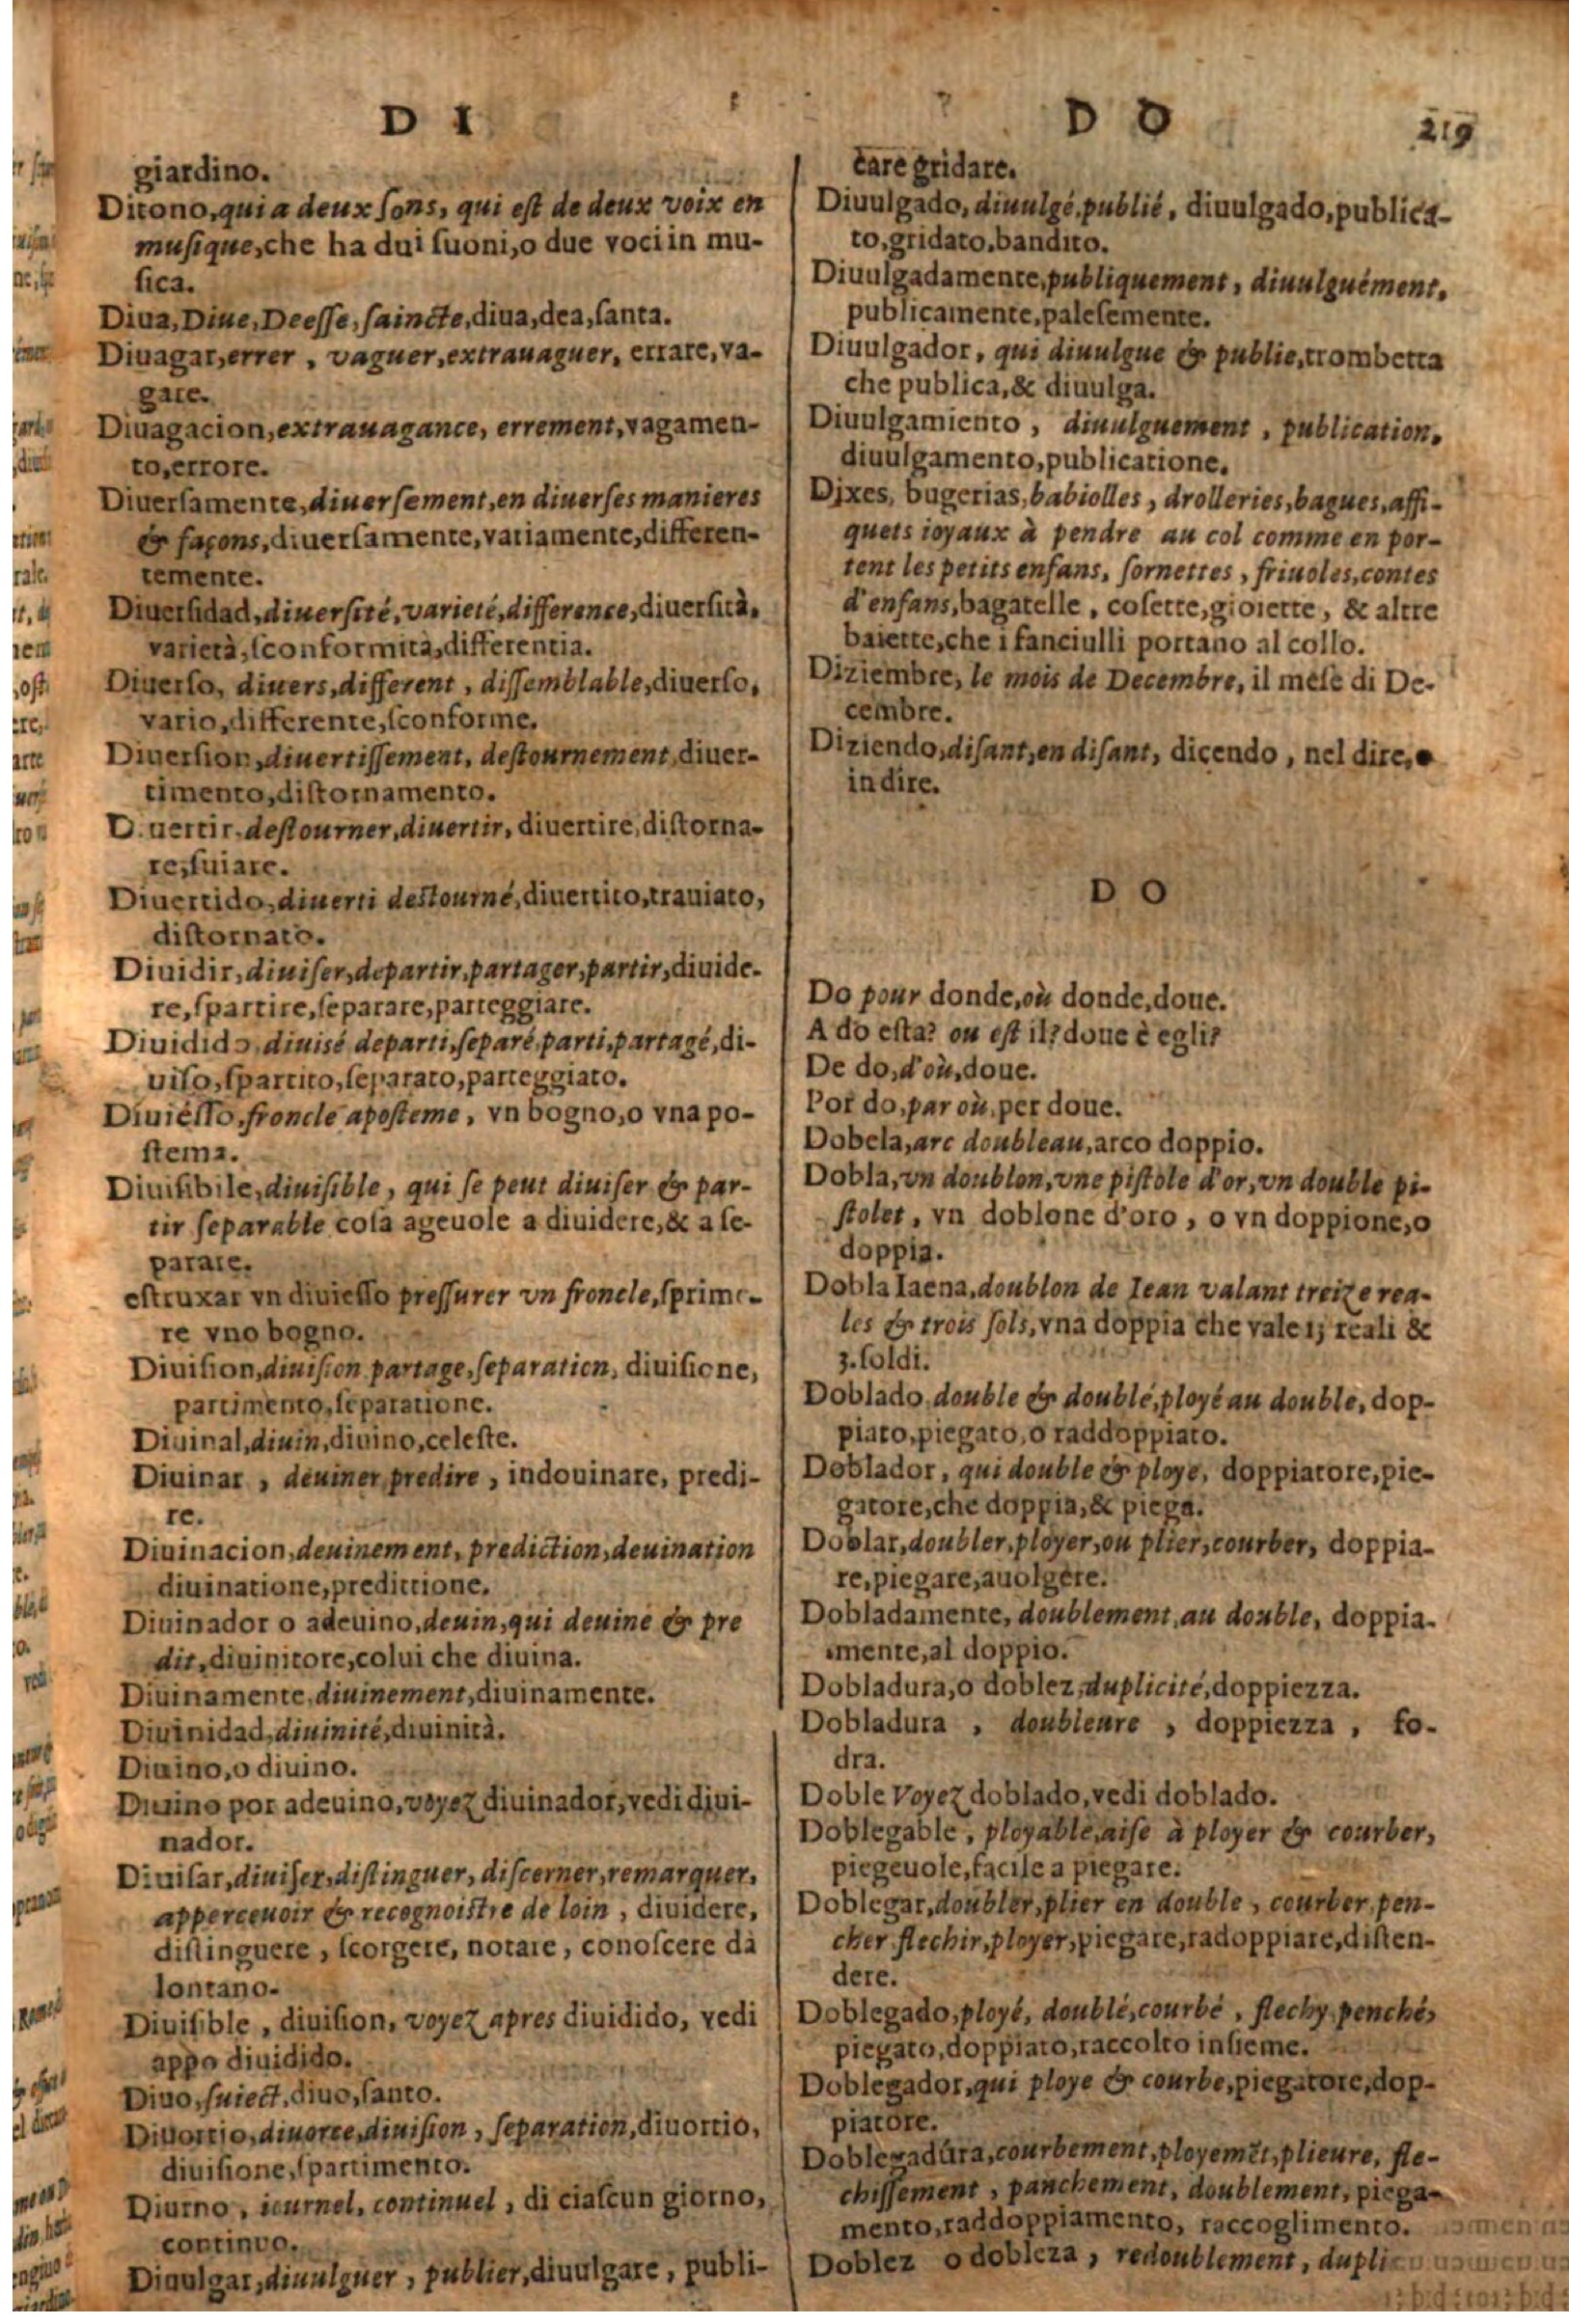 D I
giardino.
Ditono, qui a deux ſons, qui eſt de deux voix en
muſique, che ha dui ſuoni, o due voci in mu-
ſica.
Diua, Diue, Deeſſe, ſaincte, diua, dea, ſanta.
Diuagar, errer , vaguer, extrauaguer, errare, va-
gare.
Diuagacion, extrauagance, errement, vagamen-
to, errore.
Diuerſamente, diuerſement, en diuerſes manieres
& façons, diuerſamente, variamente, differen-
temente.
Diuerſidad, diuerſité, varieté, difference, diuerſità,
varietà, ſconformità, differentia.
Diuerſo, diuers, different , diſſemblable, diuerſo,
vario, differente, ſconforme.
Diuerſion, diuertiſſement, deſtournement, diuer-
timento, diſtornamento.
D.uertir. deſtourner, diuertir, diuertire, diſtorna-
re, ſuiare.
Diuertido, diuerti deſtourné, diuertito, trauiato,
diſtornato.
Diuidir, diuiſer, departir, partager, partir, diuide-
re, ſpartire, ſeparare, parteggiare.
Diuidido, diuisé departi, ſeparé, parti, partagé, di-
uiſo, ſpartito, ſeparato, parteggiato.
Diuieſſo, froncle apoſteme , vn bogno, o vna po-
ſtema.
Diuiſibile, diuiſible , qui ſe peut diuiſer & par-
tir ſeparable coſa ageuole a diuidere, & a ſe-
parare.
eſtruxar vn diuieſſo preſſurer vn froncle, ſprime-
re vno bogno.
Diuiſion, diuiſion partage, ſeparation, diuiſione,
partimento, ſeparatione.
Diuinal, diuin, diuino, celeſte.
Diuinar , deuiner, predire , indouinare, predi-
re.
Diuinacion, deuinement, prediction, deuination
diuinatione, predittione.
Diuinador o adeuino, deuin, qui deuine & pre
dit, diuinitore, colui che diuina.
Diuinamente, diuinement, diuinamente.
Diuinidad, diuinité, diuinità.
Diuino, o diuino.
Diuino por adeuino, voyez diuinador, vedi diui-
nador.
Diuiſar, diuiſer, diſtinguer, diſcerner, remarquer,
apperceuoir & recognoiſtre de loin , diuidere,
diſtinguere , ſcorgere, notare , conoſcere dà
lontano.
Diuiſible , diuiſion, voyez apres diuidido, vedi
appo diuidido.
Diuo, ſuiect, diuo, ſanto.
Diuortio, diuorce, diuiſion , ſeparation, diuortio,
diuiſione, ſpartimento.
Diurno , iournel, continuel , di ciaſcun giorno,
continuo.
Diuulgar, diuulguer , publier, diuulgare , publi-
D O 219
care gridare.
Diuulgado, diuulgé, publié , diuulgado, publica-
to, gridato, bandito.
Diuulgadamente, publiquement , diuulguément,
publicamente, paleſemente.
Diuulgador, qui diuulgue & publie, trombetta
che publica, & diuulga.
Diuulgamiento , diuulguement , publication,
diuulgamento, publicatione.
Dixes, bugerias, babiolles , drolleries, bagues, affi-
quets ioyaux à pendre au col comme en por-
tent les petits enfans, ſornettes , friuoles, contes
d'enfans, bagatelle , coſette, gioiette , & altre
baiette, che i fanciulli portano al collo.
Diziembre, le mois de Decembre, il meſe di De-
cembre.
Diziendo, diſant, en diſant, dicendo , nel dire, o
in dire.
D O
Do pour donde, où donde, doue.
A do eſta? ou eſt il? doue è egli?
De do, d'où, doue.
Por do, par où, per doue.
Dobela, arc doubleau, arco doppio.
Dobla, vn doublon, vne piſtole d'or, vn double pi-
ſtolet , vn doblone d'oro , o vn doppione, o
doppia.
Dobla Iaena, doublon de Iean valant treize rea-
les & trois ſols, vna doppia che vale 13 reali &
3. ſoldi.
Doblado, double & doublé, ployé au double, dop-
piato, piegato, o raddoppiato.
Doblador , qui double & ploye, doppiatore, pie-
gatore, che doppia, & piega.
Doblar, doubler, ployer, ou plier, courber, doppia-
re, piegare, auolgere.
Dobladamente, doublement, au double, doppia-
mente, al doppio.
Dobladura, o doblez, duplicité, doppiezza.
Dobladura , doubleure , doppiezza , fo-
dra.
Doble Voyez doblado, vedi doblado.
Doblegable , ployable, aiſe à ployer & courber,
piegeuole, facile a piegare.
Doblegar, doubler, plier en double , courber, pen-
cher flechir, ployer, piegare, radoppiare, diſten-
dere.
Doblegado, ployé, doublé, courbé , flechy penché,
piegato, doppiato, raccolto inſieme.
Doblegador, qui ploye & courbe, piegatore, dop-
piatore.
Doblegadura, courbement, ployemẽt, plieure, fle-
chiſſement , panchement, doublement, piega-
mento, raddoppiamento, raccoglimento.
Doblez o dobleza , redoublement , dupli